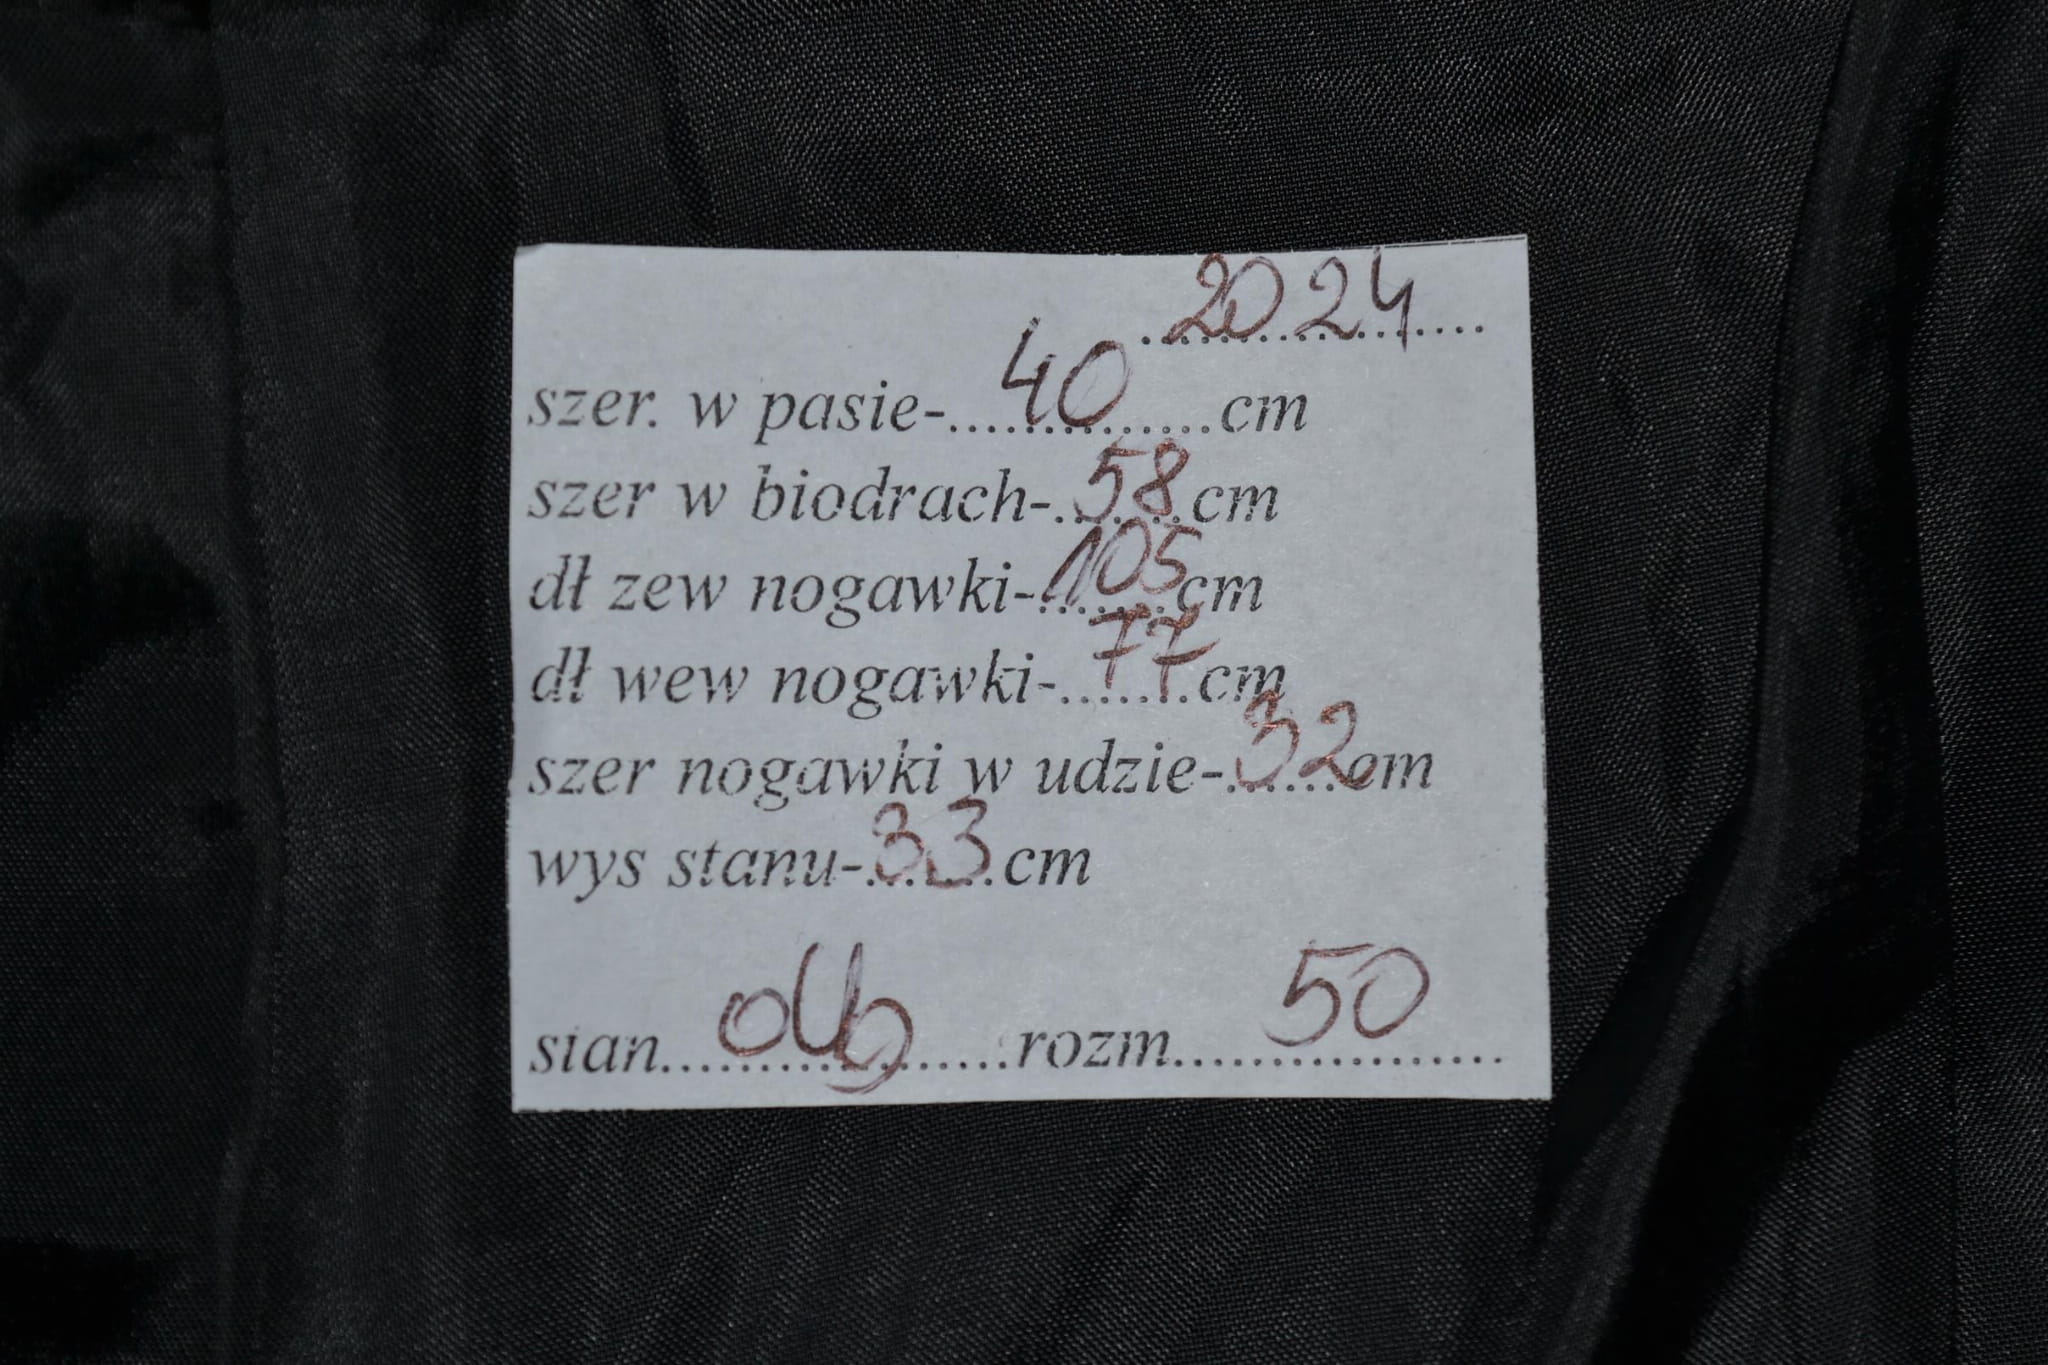 2024
szer. w pasie-....40....cm
szer w biodrach-.58.cm
dł zew nogawki-.105.cm
dł wew nogawki-.77.cm
szer nogawki w udzie-.32.cm
wys stanu-.33.cm
stan..........rozm....50....